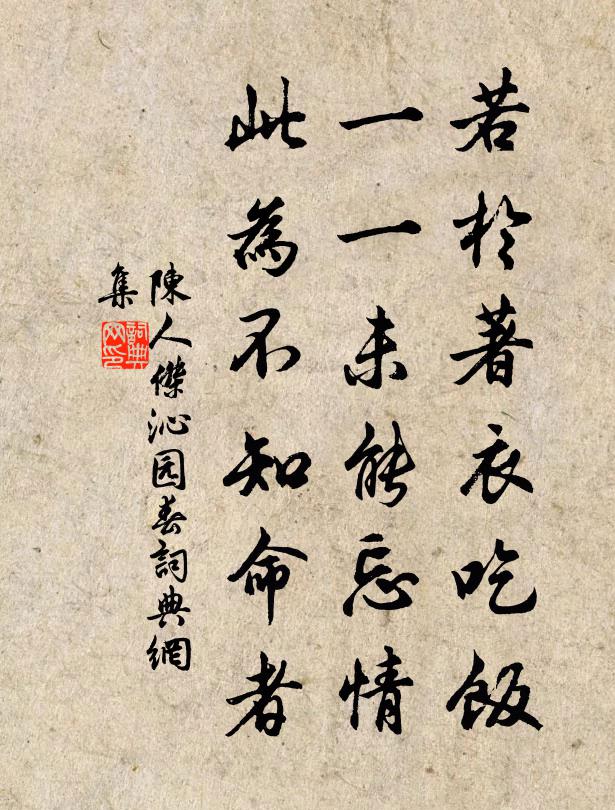 若於著衣吃飯
一一未能忘情
此為不知命者
陳人傑沁园春詞典網
集
詞典网印